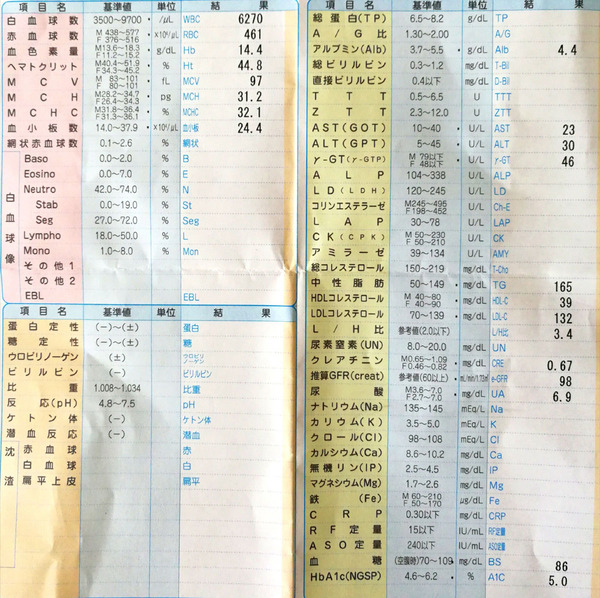 項目名 基準値 単位 結果
白血球数 3500~9700 • /μL WBC 6270
赤血球数 M 438~577 F 376~516 • ×10⁴/μL RBC 461
血色素量 M13.6~18.3 F11.2~15.2 • g/dL Hb 14.4
ヘマトクリット M40.4~51.9 F34.3~45.2 • % Ht 44.8
MCV M 83~101 F 80~101 • fL MCV 97
MCH M28.2~34.7 F26.4~34.3 • pg MCH 31.2
MCHC M31.8~36.4 F31.3~36.1 • % MCHC 32.1
血小板数 14.0~37.9 • ×10⁴/μL 血小板 24.4
網状赤血球数 0.1~2.6 % 網状
白血球像
Baso 0.0~2.0 % B
Eosino 0.0~7.0 % E
Neutro 42.0~74.0 % N
Stab 0.0~19.0 % St
Seg 27.0~72.0 % Seg
Lympho 18.0~50.0 % L
Mono 1.0~8.0 % Mon
その他1
その他2
EBL EBL
項目名 基準値 単位 結果
蛋白定性 (-)~(±) 蛋白
糖定性 (-)~(±) 糖
ウロビリノーゲン (±) ウロビリノーゲン
ビリルビン (-) ビリルビン
比重 1.008~1.034 比重
反応(pH) 4.8~7.5 pH
ケトン体 (-) ケトン体
潜血反応 (-) 潜血
沈渣
赤血球 赤
白血球 白
扁平上皮 扁平
項目名 基準値 単位 結果
総蛋白(TP) 6.5~8.2 g/dL TP
A/G比 1.30~2.00 A/G
アルブミン(Alb) 3.7~5.5 • g/dL Alb 4.4
総ビリルビン 0.3~1.2 mg/dL T-Bil
直接ビリルビン 0.4以下 mg/dL D-Bil
TTT 0.5~6.5 U TTT
ZTT 2.3~12.0 U ZTT
AST(GOT) 10~40 • U/L AST 23
ALT(GPT) 5~45 • U/L ALT 30
γ-GT(γ-GTP) M 79以下 F 48以下 • U/L γ-GT 46
ALP 104~338 U/L ALP
LD(LDH) 120~245 U/L LD
コリンエステラーゼ M245~495 F198~452 U/L Ch-E
LAP 30~78 U/L LAP
CK(CPK) M 50~230 F 50~210 U/L CK
アミラーゼ 39~134 U/L AMY
総コレステロール 150~219 mg/dL T-Cho
中性脂肪 50~149 • mg/dL TG 165
HDLコレステロール M 40~80 F 40~90 • mg/dL HDL-C 39
LDLコレステロール 70~139 • mg/dL LDL-C 132
L/H比 参考値(2.0以下) L/H比 3.4
尿素窒素(UN) 8.0~20.0 mg/dL UN
クレアチニン M0.65~1.09 F0.46~0.82 • mg/dL CRE 0.67
推算GFR(creat) 参考値(60以上) • mL/min/1.73㎡ e-GFR 98
尿酸 M3.6~7.0 F2.7~7.0 • mg/dL UA 6.9
ナトリウム(Na) 135~145 mEq/L Na
カリウム(K) 3.5~5.0 mEq/L K
クロール(Cl) 98~108 mEq/L Cl
カルシウム(Ca) 8.6~10.2 mg/dL Ca
無機リン(IP) 2.5~4.5 mg/dL IP
マグネシウム(Mg) 1.7~2.6 mg/dL Mg
鉄(Fe) M 60~210 F 50~170 μg/dL Fe
CRP 0.30以下 mg/dL CRP
RF定量 15以下 IU/mL RF定量
ASO定量 240以下 IU/mL ASO定量
血糖 (空腹時)70~109 • mg/dL BS 86
HbA1c(NGSP) 4.6~6.2 • % A1C 5.0